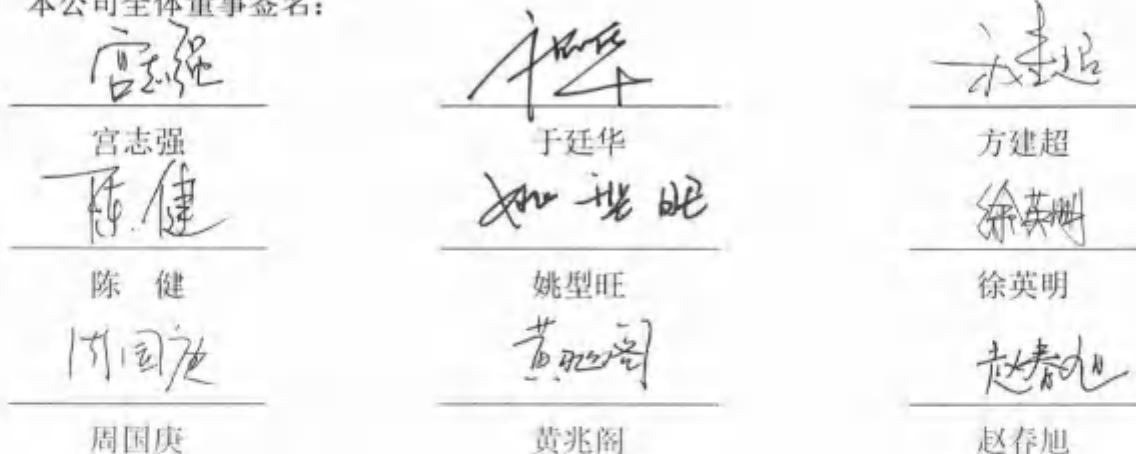 本公司全体董事签名：
宫志强 于廷华 方建超
宫志强 于廷华 方建超
陈健 姚型旺 徐英明
陈 健 姚型旺 徐英明
周国庚 黄兆阁 赵春旭
周国庚 黄兆阁 赵春旭